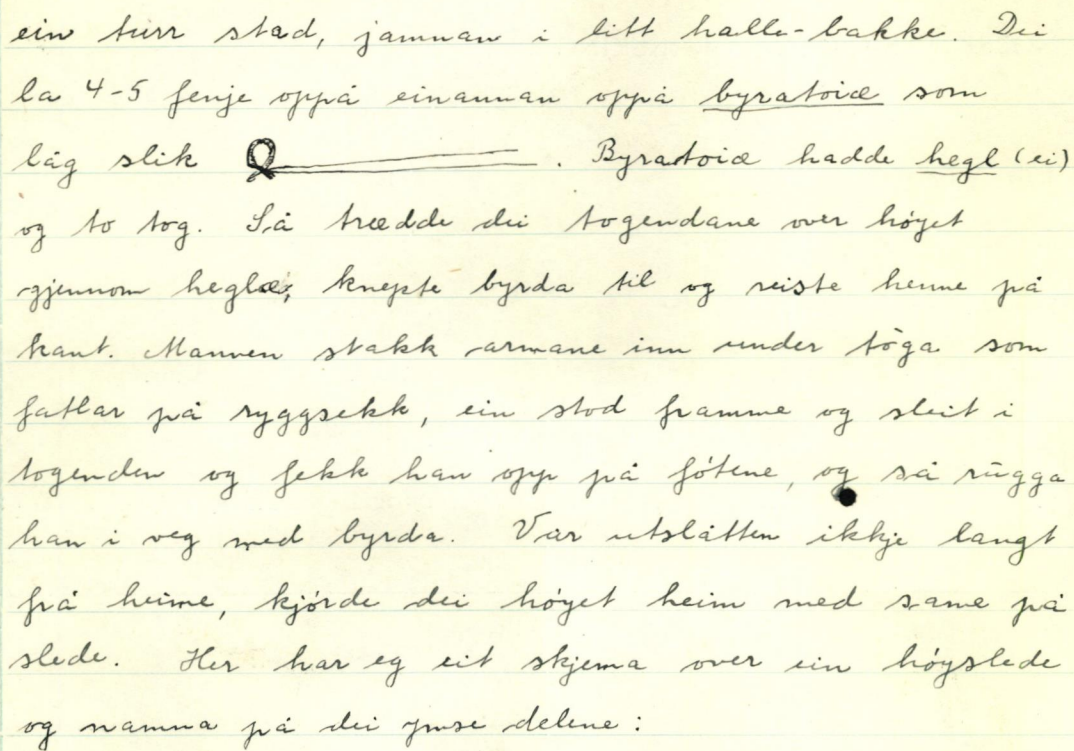 ein turr stad, jamnan i litt halle-bakke. Dei
la 4-5 fenje oppå einannan oppå byratoiæ som
låg slik . Byratoiæ hadde hegl (ei)
og to tog. Så trædde dei togendane over høyet
gjennom heglæ, knepte byrda til og reiste henne på
kant. Mannen stakk armane inn under tòga som
fatlar på ryggsekk, ein stod framme og sleit i
togenden og fekk han opp på føtene, og så rugga
han i veg med byrda. Var utslåtten ikkje langt
frå heime, kjørde dei høyet heim med same på
slede. Her har eg eit skjema over ein høyslede
og namna på dei ymse delene: